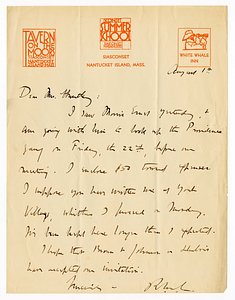 TAVERN
ON THE
MOOR
NANTUCKET
ISLAND, MASS.
SIASCONSET
SUMMER
SCHOOL
SIASCONSET
NANTUCKET ISLAND, MASS.
WHITE WHALE
INN
August 1st
Dear Mr. Huntley:
I saw Morris Ernst yesterday, &
am going with him to look up the Providence
gang on Friday, the 22nd, before our
meeting. I enclose $50 toward expenses.
I suppose you have written me at York
Village, whither I proceed on Monday,
We've been kept here longer than I expected.
I hope that Moore & Johnson
have accepted our invitation.
Sincerely -